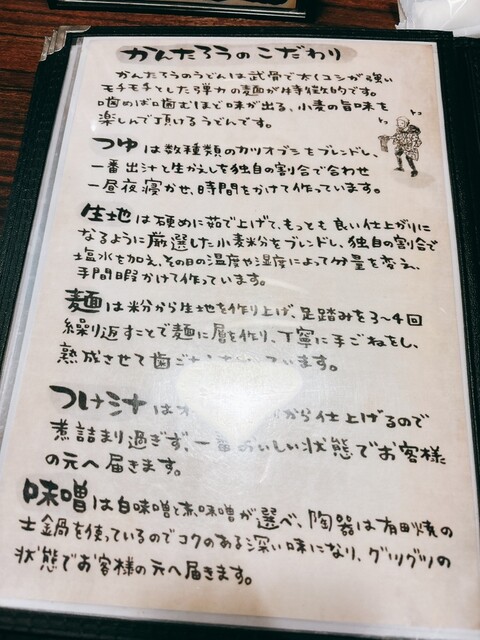 かんたろうのこだわり
かんたろうのうどんは武骨で太くコシが強い
モチモチとした弾力の麺が特徴的です。
噛めば噛むほど味が出る、小麦の旨味を
楽しんで頂けるうどんです。
つゆは数種類のカツオブシをブレンドし、
一番出汁と生かえしを独自の割合で合わせ
一昼夜寝かせ、時間をかけて作っています。
生地は硬めに茹で上げて、もっとも良い仕上がりに
なるように厳選した小麦粉をブレンドし、独自の割合で
塩水を加え、その日の温度や湿度によって分量を変え、
手間暇かけて作っています。
麺は粉から生地を作り上げ、足踏みを3〜4回
繰り返すことで麺に層を作り、丁寧に手ごねをし、
熟成させて歯ごた ています。
つけ汁は から仕上げるので
煮詰まり過ぎず、一番おいしい状態でお客様
の元へ届きます。
味噌は白味噌と赤味噌が選べ、陶器は有田焼の
土鍋を使っているのでコクのある深い味になり、グツグツの
状態でお客様の元へ届きます。